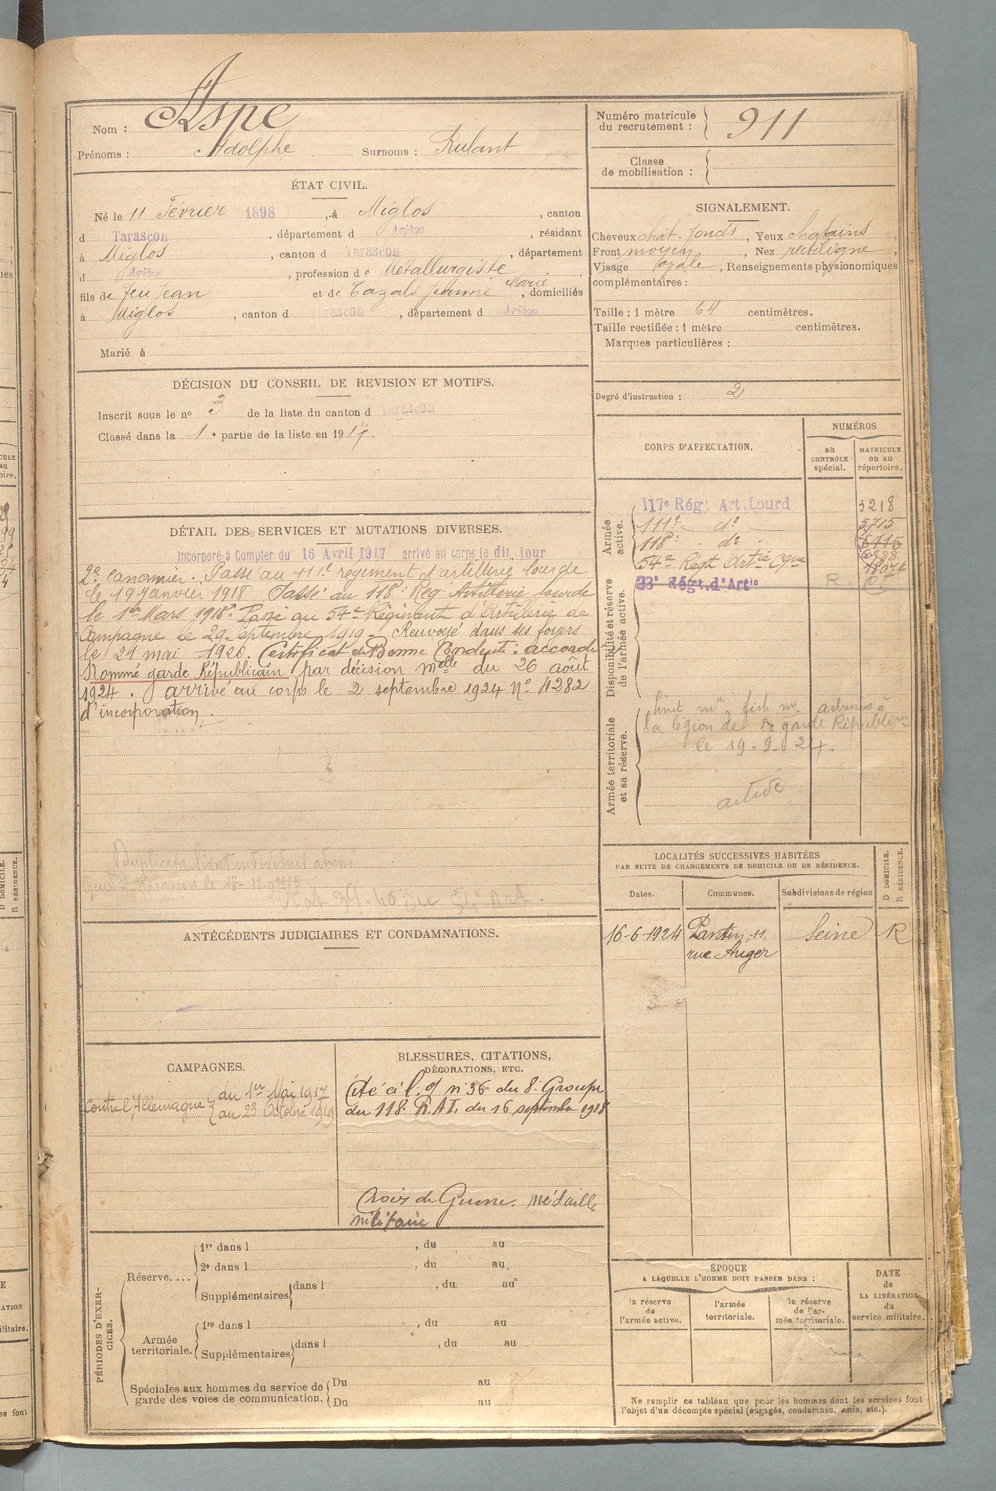 Nom : Aspe
Prénoms : Adolphe Surnoms : Rulant
Numéro matricule du recrutement : 911
Classe de mobilisation :
ÉTAT CIVIL.
Né le 11 Février 1898, à Miglos, canton
d Tarascon, département d Ariège, résidant
à Miglos, canton d Tarascon, département
d Ariège, profession de Métallurgiste
fils de feu Jean et de Cazals Jeanne Marie, domiciliés
à Miglos, canton d Tarascon, département d Ariège
Marié à
SIGNALEMENT.
Cheveux chat. foncés, Yeux chatains
Front moyen, Nez rectiligne
Visage ovale, Renseignements physionomiques
complémentaires :
Taille : 1 mètre 64 centimètres.
Taille rectifiée : 1 mètre centimètres.
Marques particulières :
Degré d'instruction : 2
DÉCISION DU CONSEIL DE REVISION ET MOTIFS.
Inscrit sous le nº 3 de la liste du canton d Tarascon
Classé dans la 1e partie de la liste en 1917.
DÉTAIL DES SERVICES ET MUTATIONS DIVERSES.
Incorporé à Compter du 16 Avril 1917 arrivé au corps le dit jour
2e canonnier. Passé au 111e régiment d'artillerie lourde
le 19 janvier 1918 Passé au 118e Rég. Artillerie lourde
le 1er Mars 1918. Passé au 54e Régiment d'Artillerie de
Campagne le 29 Septembre 1919. Renvoyé dans ses foyers
le 21 mai 1920. Certificat de Bonne Conduite : accordé
Nommé garde Républicain par décision melle du 26 août
1924. arrivé au corps le 2 septembre 1924 Nº 4282
d'incorporation.
CORPS D'AFFECTATION.
NUMÉROS
au CONTRÔLE spécial.
MATRICULE ou au répertoire.
Armée active.
117e Rég. Art. Lourd 3218
111e dº 5715
118e dº
54e Régt Artie Cgne
Disponibilité et réserve de l'armée active.
23e Régt. d'Artie R.
Armée territoriale et sa réserve.
adressés à
la légion de la garde Républicaine
le 19-9-24.
active
Duplicata livret individuel
LOCALITÉS SUCCESSIVES HABITÉES
PAR SUITE DE CHANGEMENTS DE DOMICILE OU DE RÉSIDENCE.
Dates. Communes. Subdivisions de région D DOMICILE. R RÉSIDENCE.
16-6-1924 Pantin, 11, Seine R
rue Auger
ANTÉCÉDENTS JUDICIAIRES ET CONDAMNATIONS.
CAMPAGNES.
Contre l'Allemagne du 1er Mai 1917
au 23 Octobre 1919
BLESSURES, CITATIONS,
DÉCORATIONS, ETC.
Cité à l'o/ nº 36 du 8e Groupe
du 118e R.A.L. du 16 septembre 1918
Croix de Guerre. Médaille
militaire
PÉRIODES D'EXERCICES.
Réserve....
1re dans l , du au
2e dans l , du au
Supplémentaires dans l , du au
Armée territoriale.
1re dans l , du au
Supplémentaires dans l , du au
Spéciales aux hommes du service de garde des voies de communication.
Du au
Du au
ÉPOQUE
A LAQUELLE L'HOMME DOIT PASSER DANS :
la réserve de l'armée active.
l'armée territoriale.
la réserve de l'armée territoriale.
DATE de LA LIBÉRATION du service militaire.
Ne remplir ce tableau que pour les hommes dont les services font
l'objet d'un décompte spécial (engagés, condamnés, omis, etc.).